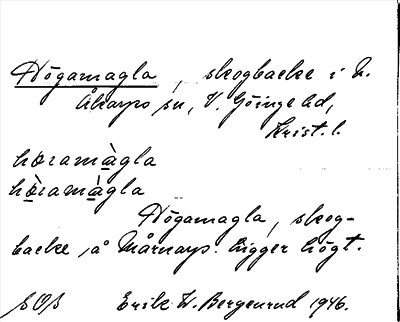 Högamagla, skogbacke i N.
Åkarps sn, V. Göinge hd,
Krist. l.
høramàgla
hø̀ramàgla
Högamagla, skog-
backe å Mårnarp. Ligger högt.
SOS Erik W. Bergenrud 1946.